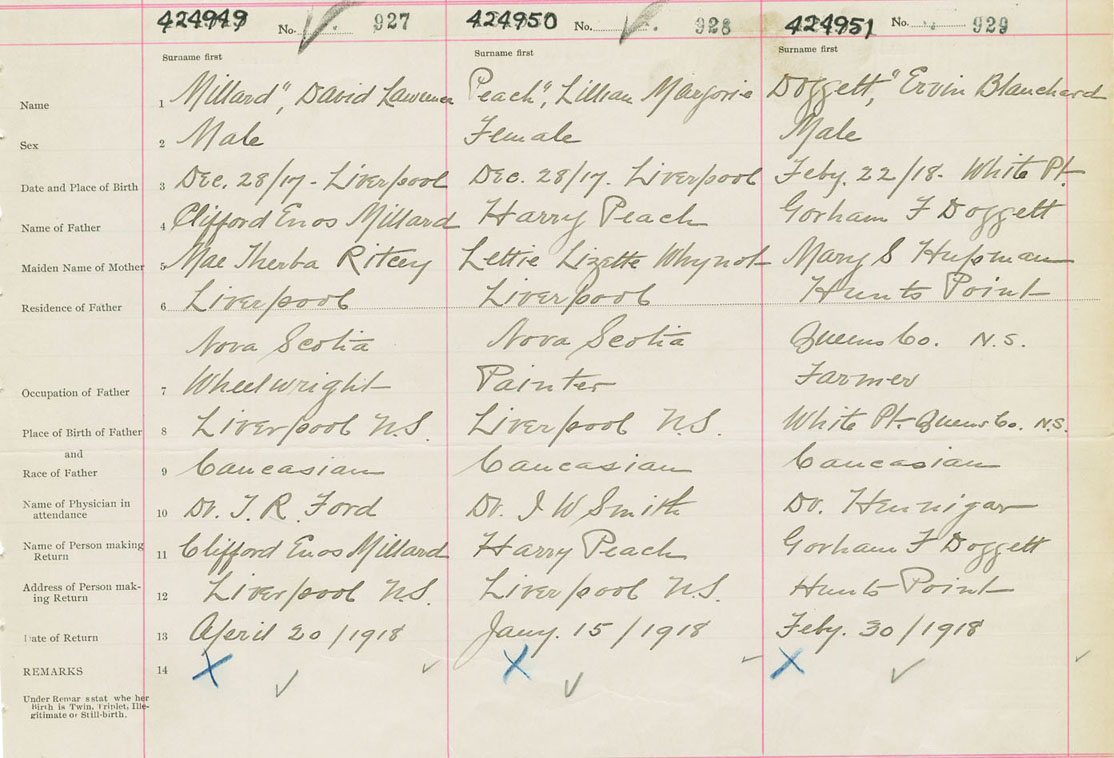 424949 No. 927 424950 No. 928 424951 No. 929
Surname first Surname first Surname first
Name 1 Millard", David Lawrence Peach", Lillian Marjorie Doggett," Ervin Blanchard
Sex 2 Male Female Male
Date and Place of Birth 3 Dec. 28/17 - Liverpool Dec. 28/17. Liverpool Feby. 22/18. White Pt.
Name of Father 4 Clifford Enos Millard Harry Peach Gorham F Doggett
Maiden Name of Mother 5 Mae Therba Ritcey Lettie Lizette Whynot Mary S Hupman
Residence of Father 6 Liverpool Liverpool Hunts Point
Nova Scotia Nova Scotia Queens Co. N.S.
Occupation of Father 7 Wheelwright Painter Farmer
Place of Birth of Father 8 Liverpool N.S. Liverpool N.S. White Pt. Queens Co. N.S.
and
Race of Father 9 Caucasian Caucasian Caucasian
Name of Physician in attendance 10 Dr. T. R. Ford Dr. J W Smith Dr. Hennigar
Name of Person making Return 11 Clifford Enos Millard Harry Peach Gorham F Doggett
Address of Person mak-ing Return 12 Liverpool N.S. Liverpool N.S. Hunts Point
Date of Return 13 April 20/1918 Jany. 15/1918 Feby. 30/1918
REMARKS 14
Under Remar s stat whe her
Birth is Twin, Triplet, Ille-
gitimate or Still-birth.